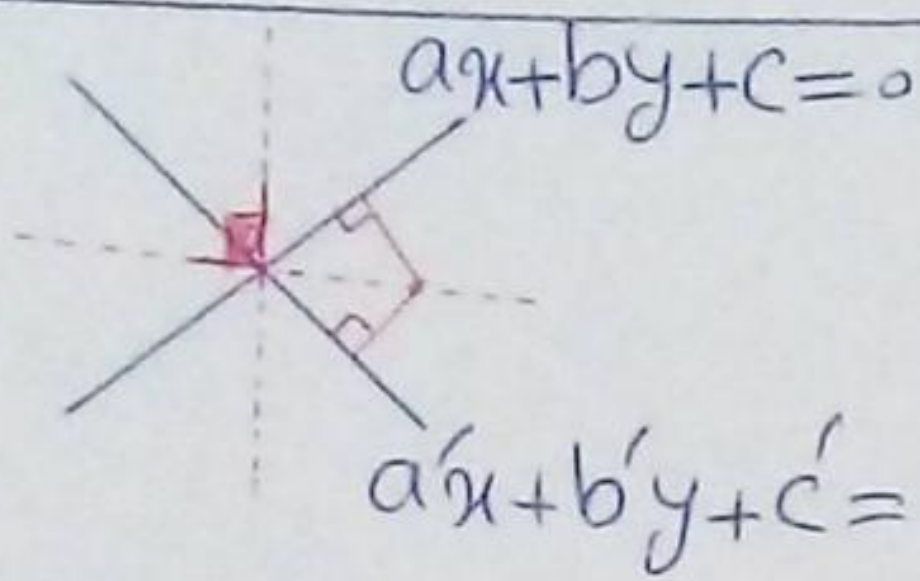 ax+by+c=0
a′x+b′y+c′=